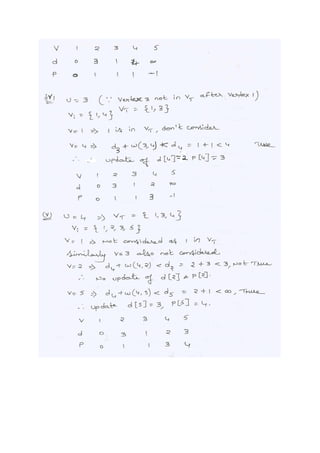 V 1 2 3 4 5
d 0 3 1 4 ∞
P 0 1 1 1 -1
(iv) U = 3 (∵ Vertex 3 not in VT after vertex 1)
VT = {1, 3}
Vi = {1, 4}
V=1 ⇒ 1 is in VT, don't consider
V=4 ⇒ d3 + w(3,4) < d4 = 1+1 < 4 True
∴ update of d[4]=2 P[4]=3
V 1 2 3 4 5
d 0 3 1 2 ∞
P 0 1 1 3 -1
(v) U=4 ⇒ VT = {1, 3, 4}
Vi = {1, 2, 3, 5}
V=1 is not considered as 1 in VT
Similarly V=3 also not considered.
V=2 ⇒ d4 + w(4,2) < d2 = 2+3 < 3, Not True
∴ No update of d[2] & P[2].
V=5 ⇒ d4 + w(4,5) < d5 = 2+1 < ∞, True
∴ update d[5]=3, P[5]=4.
V 1 2 3 4 5
d 0 3 1 2 3
P 0 1 1 3 4